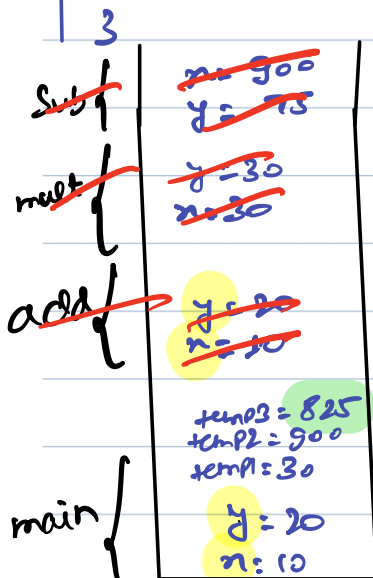 3
Sub { n = 900
y = 75
mult { y = 30
n = 30
add { y = 20
n = 10
temp3 = 825
temp2 = 900
temp1 = 30
main { y = 20
n = 10